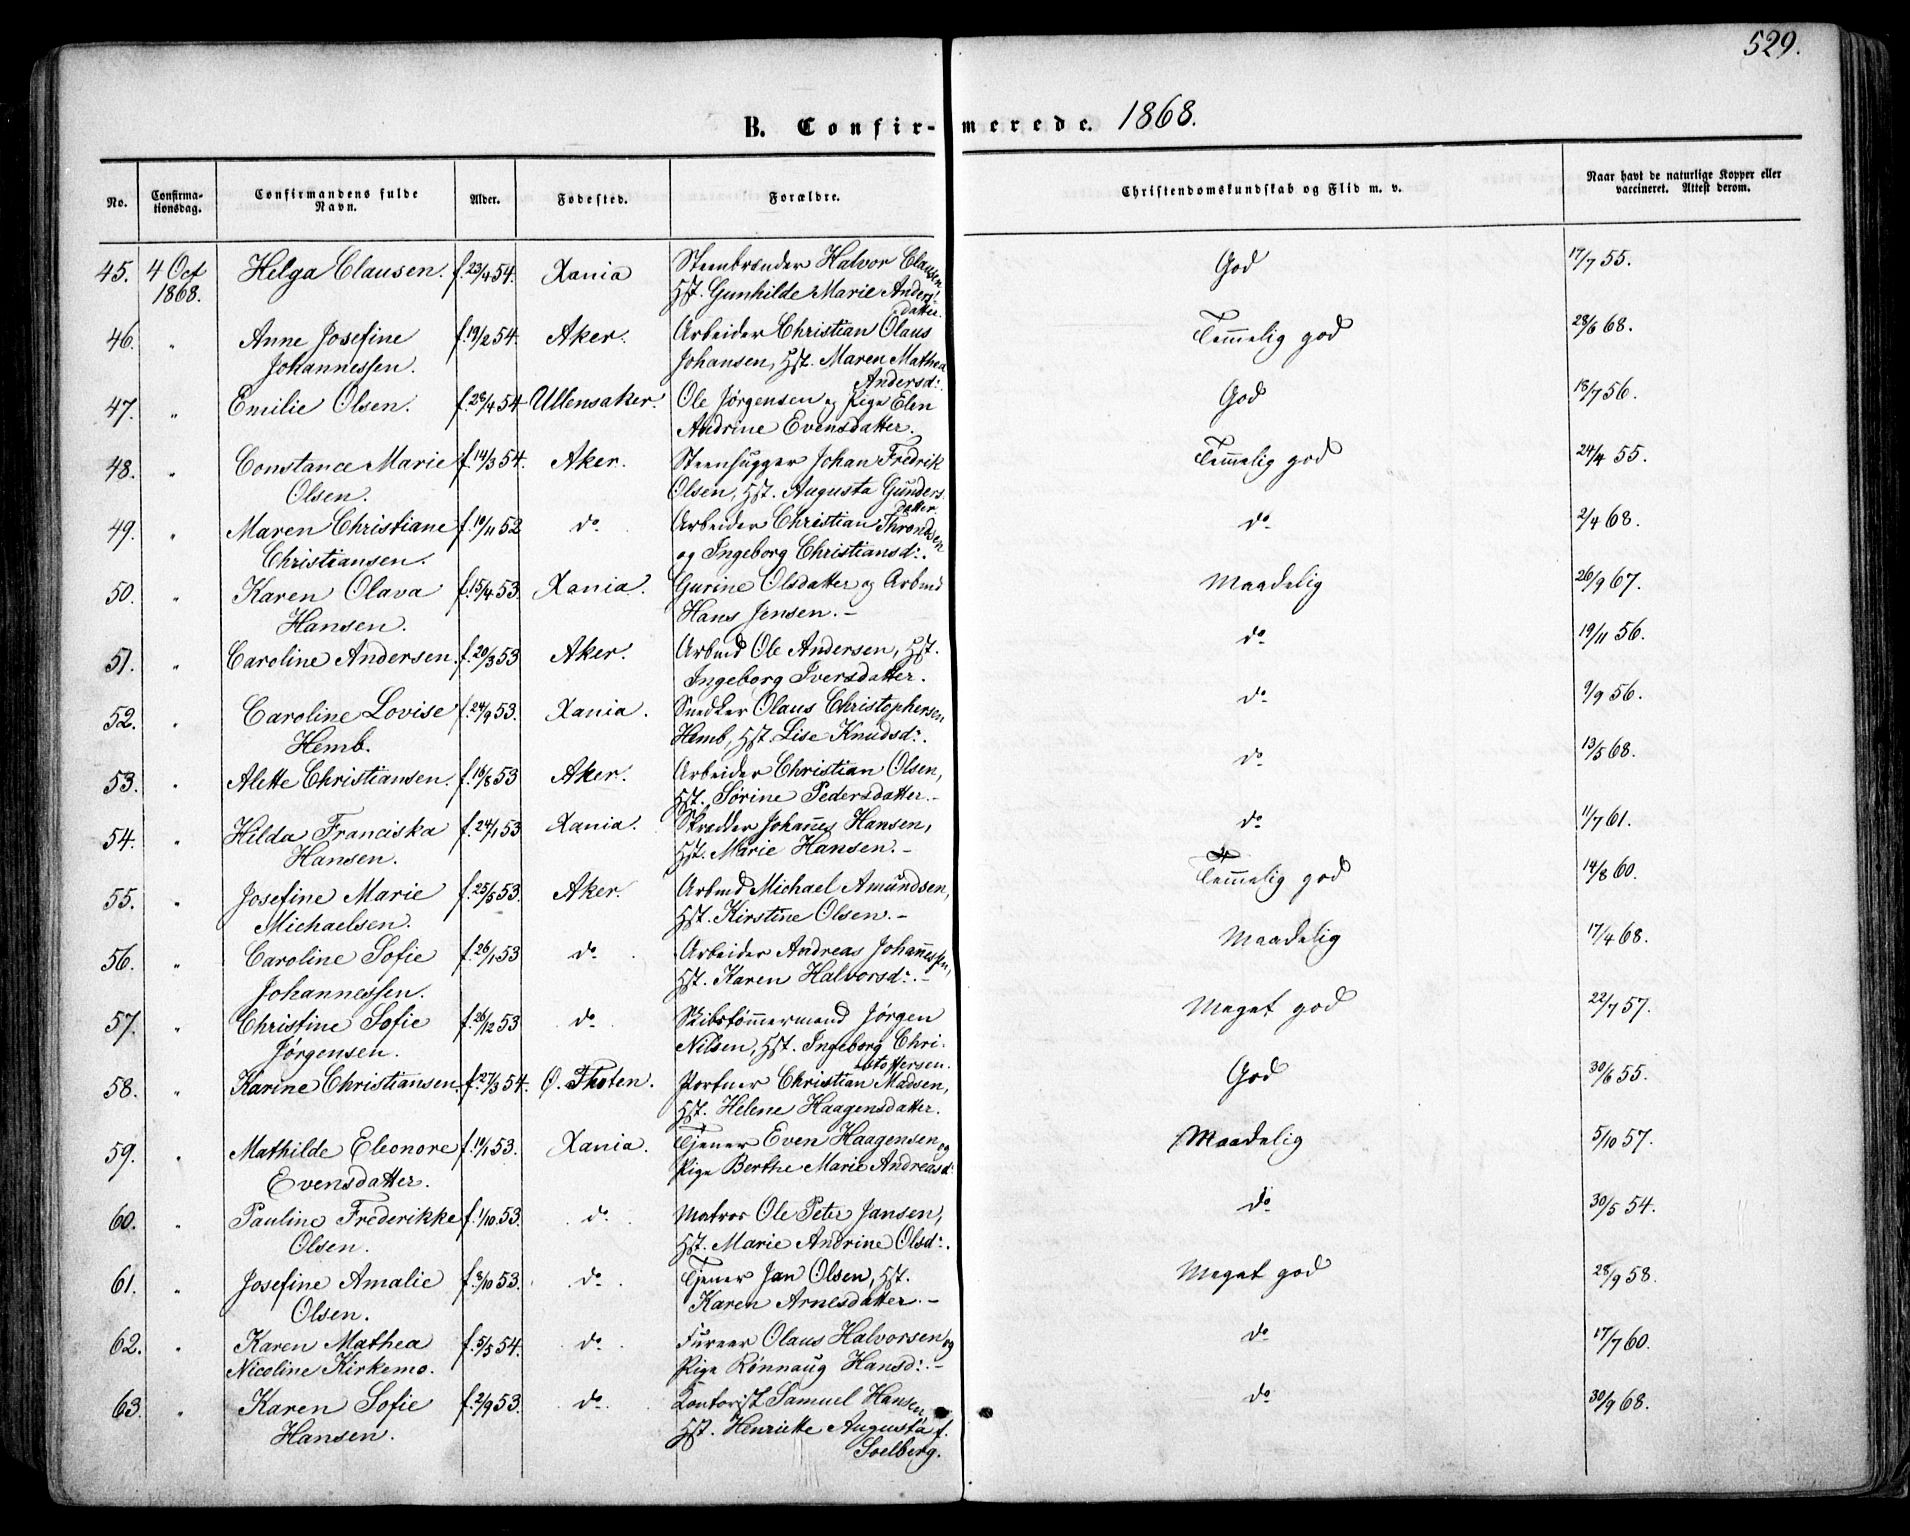 529.
B. Confirmerede. 1868.
No. Confirmationsdag. Confirmandens fulde Navn. Alder. Fødested. Forældre. Christendomskundskab og Flid m. v. Naar havt de naturlige Kopper eller vaccineret. Attest derom.
45. 4 Oct Helga Clausen. f. 23/4 54. Xania Steenbrænder Halvor Clausen, God 17/7 55.
1868. Hst. Gunhilde Marie Anders
datter.
46. " Anne Josefine f. 19/2 54. Aker. Arbeider Christian Olaus Temmelig god 28/6 68.
Johannessen. Johansen, Hst. Maren Mathea
Andersd:
47. " Emilie Olsen. f. 28/4 54 Ullensaker. Ole Jørgensen og Pige Elen God 18/7 56.
Andrine Evensdatter.
48. " Constance Marie f. 14/3 54. Aker. Steenhugger Johan Fredrik Temmelig god 24/4 55.
Olsen. Olsen, Hst. Augusta Gunders
datter.
49. " Maren Christiane f. 10/11 52 do Arbeider Christian Throndsen do 2/4 68.
Christiansen. og Ingeborg Christiansd:.
50. " Karen Olava f. 15/4 53 Xania. Gurine Olsdatter og Arbmd Maadelig 26/9 67.
Hansen. Hans Jensen. –
51. " Caroline Andersen. f. 20/3 53 Aker. Arbmd Ole Andersen, Hst. do 19/11 56.
Ingeborg Iversdatter.
52. " Caroline Lovise f. 24/9 53. Xania. Snedker Olaus Christophersen do 9/9 56.
Hemb. Hemb, Hst. Lise Knudsd:.
53. " Alette Christiansen. f. 16/8 53 Aker. Arbeider Christian Olsen, do 13/5 68.
Hst. Sørine Pedersdatter. –
54. " Hilda Franciska f. 24/1 53 Xania. Skrædder Johannes Hansen, do 11/7 61.
Hansen. Hst. Marie Hansen. –
55. " Josefine Marie f. 25/5 53. Aker. Arbmd Michael Amundsen, Temmelig god 14/8 60.
Michaelsen. Hst. Kirstine Olsen. –
56. " Caroline Sofie f. 26/1 53 do Arbeider Andreas Johannessen, Maadelig 17/4 68.
Johannessen. Hst. Karen Halvorsd:. –
57. " Christine Sofie f. 26/12 53 do Skibstømmermand Jørgen Meget god 22/7 57.
Jørgensen. Nilsen, Hst. Ingeborg Chri-
stoffersen.
58. " Karine Christiansen. f. 27/3 54. Ø. Thoten. Portner Christian Madsen, God 30/6 55.
Hst. Helene Haagensdatter.
59. " Mathilde Eleonore f. 19/1 53. Xania. Tjener Even Haagensen og Maadelig 5/10 57.
Evensdatter. Pige Berthe Marie Andreasd:
60. " Pauline Frederikke f. 1/10 53. do Matros Ole Peter Jansen, do 30/5 54.
Olsen. Hst. Marie Andrine Olsd:.
61. " Josefine Amalie f. 8/10 53. do Tjener Jan Olsen, Hst. Meget god 28/9 58.
Olsen. Karen Arnesdatter. –
62. " Karen Mathea f. 5/5 54. do Fureer Olaus Halvorsen og do 17/7 60.
Nicoline Kirkemo. Pige Rønnaug Hansd:. –
63. " Karen Sofie f. 2/9 53. do Kontorist Samuel Hansen, do 30/9 68.
Hansen. Hst. Henriette Augusta f.
Soelberg.